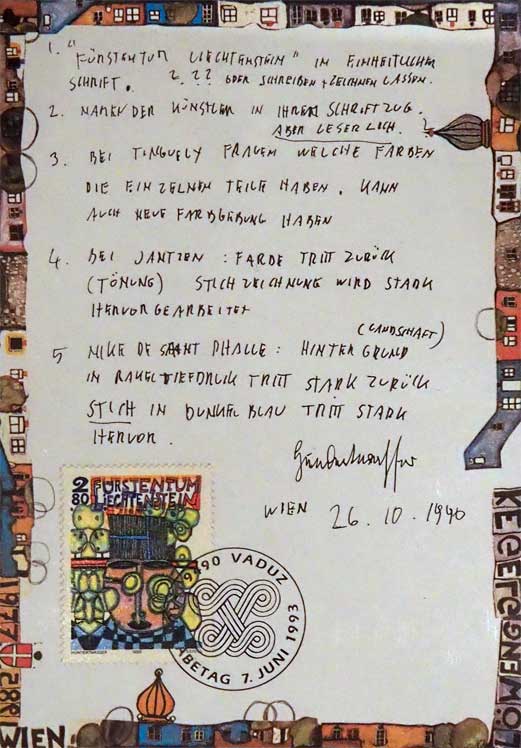 1. "FÜRSTENTUM LIECHTENSTEIN" IN EINHEITLICHER
SCHRIFT. 2. ?? ODER SCHREIBEN + ZEICHNEN LASSEN.
2. NAMEN DER KÜNSTLER IN IHREM SCHRIFTZUG.
ABER LESERLICH. ?
3. BEI TINGUELY FRAGEN WELCHE FARBEN
DIE EINZELNEN TEILE HABEN. KANN
AUCH NEUE FARBGEBUNG HABEN
4. BEI JANTZEN : FARBE TRITT ZURÜCK
(TÖNUNG) STICHZEICHNUNG WIRD STARK
HERVORGEARBEITET
(LANDSCHAFT)
5 NIKE DE SAINT PHALLE : HINTERGRUND
IN RAKELTIEFDRUCK TRITT STARK ZURÜCK
STICH IN DUNKELBLAU TRITT STARK
HERVOR.
Hundertwasser
WIEN 26.10.1990
2 FÜRSTENTUM
80 LIECHTENSTEIN
HUNDERTWASSER
9490 VADUZ
BETAG 7. JUNI 1993
1977
WIEN